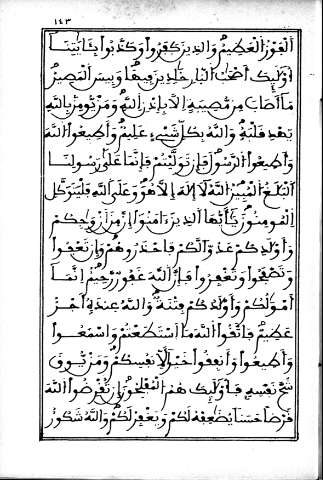 ١٤٣
الْفَوْزُ الْعَظِيمُ وَالَّذِينَ كَفَرُوا وَكَذَّبُوا بِـَٔايَٰتِنَا
أُوْلَٰٓئِكَ أَصْحَٰبُ النَّارِ خَٰلِدِينَ فِيهَا وَبِيسَ الْمَصِيرُ
مَآ أَصَابَ مِن مُّصِيبَةٍ إِلَّا بِإِذْنِ اللَّهِ وَمَن يُّومِنۢ بِاللَّهِ
يَهْدِ قَلْبَهُۥ وَاللَّهُ بِكُلِّ شَيْءٍ عَلِيمٌ وَأَطِيعُوا اللَّهَ
وَأَطِيعُوا الرَّسُولَ فَإِن تَوَلَّيْتُمْ فَإِنَّمَا عَلَىٰ رَسُولِنَا
الْبَلَٰغُ الْمُبِينُ اللَّهُ لَآ إِلَٰهَ إِلَّا هُوَ وَعَلَى اللَّهِ فَلْيَتَوَكَّلِ
الْمُومِنُونَ يَٰٓأَيُّهَا الَّذِينَ ءَامَنُوا إِنَّ مِنْ أَزْوَٰجِكُمْ
وَأَوْلَٰدِكُمْ عَدُوًّا لَّكُمْ فَاحْذَرُوهُمْ وَإِن تَعْفُوا
وَتَصْفَحُوا وَتَغْفِرُوا فَإِنَّ اللَّهَ غَفُورٌ رَّحِيمٌ إِنَّمَآ
أَمْوَٰلُكُمْ وَأَوْلَٰدُكُمْ فِتْنَةٌ وَاللَّهُ عِندَهُۥٓ أَجْرٌ
عَظِيمٌ فَاتَّقُوا اللَّهَ مَا اسْتَطَعْتُمْ وَاسْمَعُوا
وَأَطِيعُوا وَأَنفِقُوا خَيْرًا لِّأَنفُسِكُمْ وَمَن يُّوقَ
شُحَّ نَفْسِهِۦ فَأُوْلَٰٓئِكَ هُمُ الْمُفْلِحُونَ إِن تُقْرِضُوا اللَّهَ
قَرْضًا حَسَنًا يُضَٰعِفْهُ لَكُمْ وَيَغْفِرْ لَكُمْ وَاللَّهُ شَكُورٌ